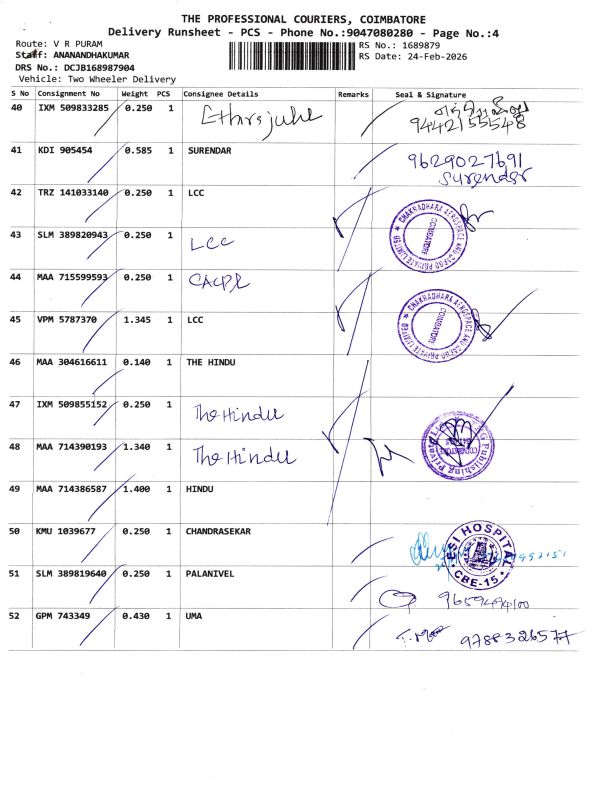 THE PROFESSIONAL COURIERS, COIMBATORE
Delivery Runsheet - PCS - Phone No.:9047080280 - Page No.:4
Route: V R PURAM
RS No.: 1689879
Staff: ANANANDHAKUMAR
RS Date: 24-Feb-2026
DRS No.: DCJB168987904
Vehicle: Two Wheeler Delivery
S No Consignment No Weight PCS Consignee Details Remarks Seal & Signature
40 IXM 509833285 0.250 1
9442155548
41 KDI 905454 0.585 1 SURENDAR 9629027691
Surender
42 TRZ 141033140 0.250 1 LCC
CHAKRADHARA AEROSPACE AND CARGO PRIVATE LIMITED
COIMBATORE
43 SLM 389820943 0.250 1 LCC
44 MAA 715599593 0.250 1 CACPL
CHAKRADHARA AEROSPACE AND CARGO PRIVATE LIMITED
COIMBATORE
45 VPM 5787370 1.345 1 LCC
46 MAA 304616611 0.140 1 THE HINDU
47 IXM 509855152 0.250 1 The Hindu
48 MAA 714390193 1.340 1 The Hindu
Publishing Private
49 MAA 714386587 1.400 1 HINDU
50 KMU 1039677 0.250 1 CHANDRASEKAR
ESI HOSPITAL
CBE-15
51 SLM 389819640 0.250 1 PALANIVEL
9659494100
52 GPM 743349 0.430 1 UMA
9788326577